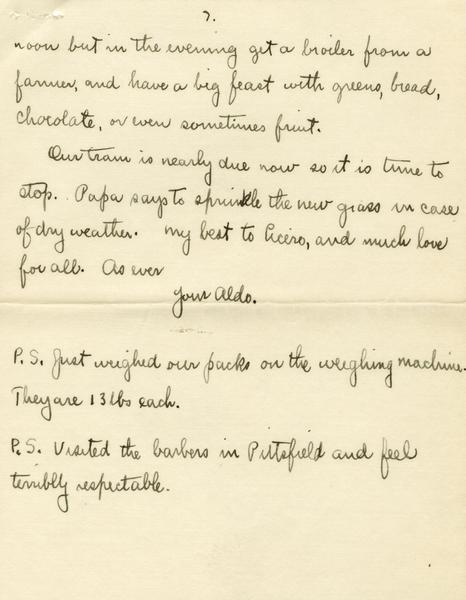 7.
noon but in the evening get a broiler from a
farmer, and have a big feast with greens, bread,
chocolate, or even sometimes fruit.
Our train is nearly due now so it is time to
stop. Papa says to sprinkle the new grass in case
of dry weather. My best to Cicero, and much love
for all. As ever
Your Aldo.
P.S. Just weighed our packs on the weighing machine.
They are 13 lbs each.
P.S. Visited the barbers in Pittsfield and feel
terribly respectable.